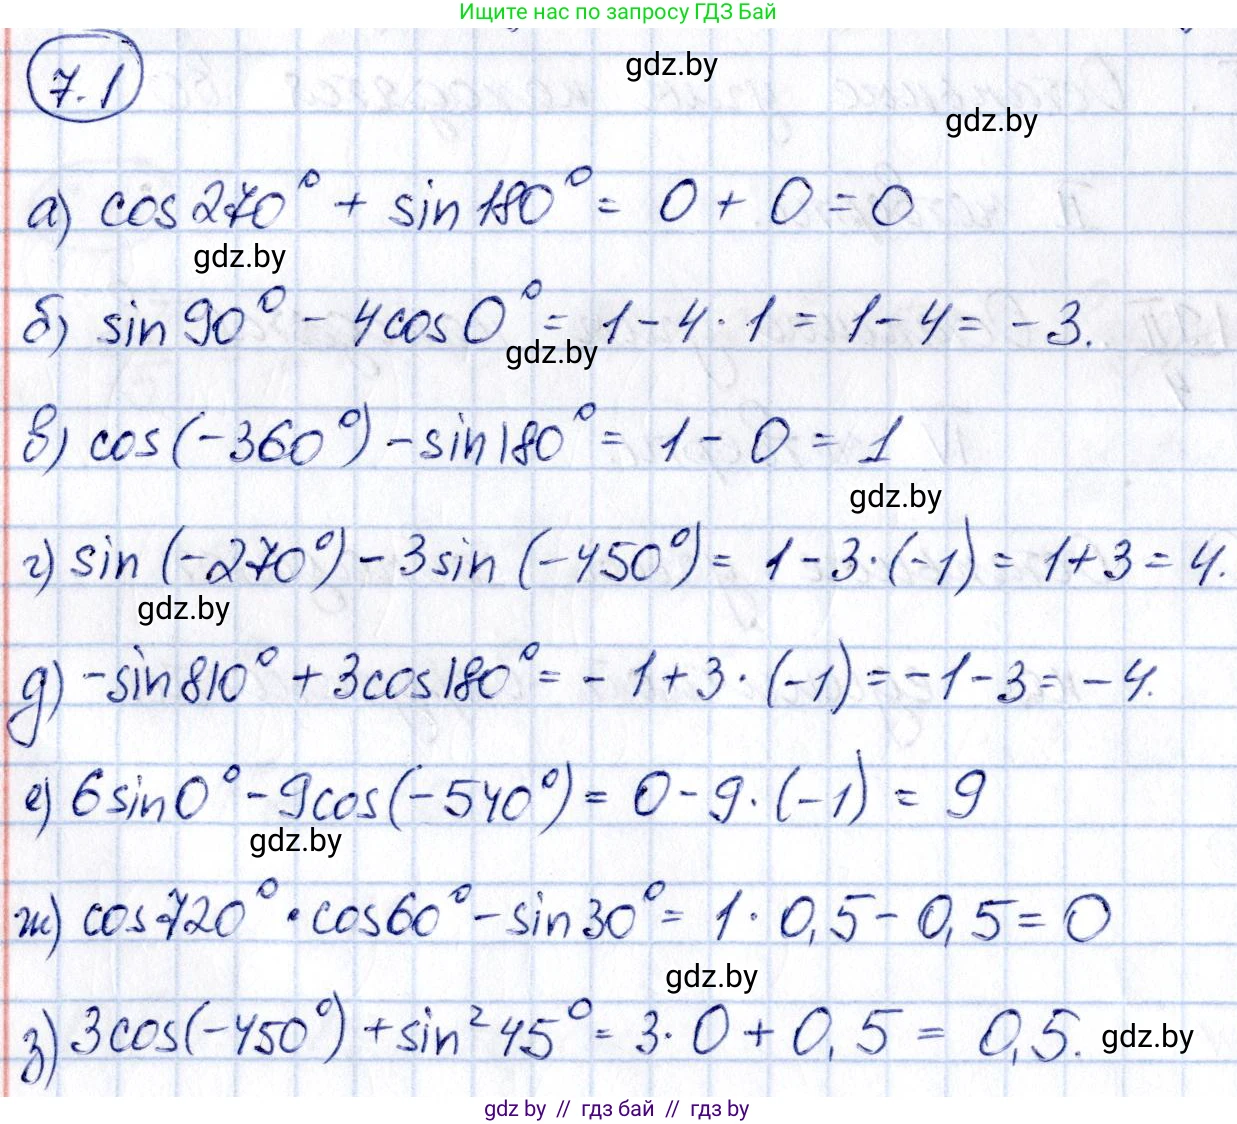 Ищите нас по запросу ГДЗ Бай
7.1
gdz.by
gdz.by
а) cos 270° + sin 180° = 0 + 0 = 0
gdz.by
б) sin 90° - 4cos 0° = 1 - 4 · 1 = 1 - 4 = -3.
gdz.by
в) cos(-360°) - sin 180° = 1 - 0 = 1
gdz.by
г) sin (-270°) - 3sin (-450°) = 1 - 3·(-1) = 1+3 = 4.
gdz.by
д) -sin 810° + 3cos 180° = -1 + 3 · (-1) = -1 - 3 = -4.
е) 6sin 0° - 9cos(-540°) = 0 - 9·(-1) = 9
gdz.by
ж) cos 720° · cos 60° - sin 30° = 1 · 0,5 - 0,5 = 0
gdz.by
з) 3cos(-450°) + sin² 45° = 3·0 + 0,5 = 0,5.
gdz.by
gdz by // гдз бай // гдз by